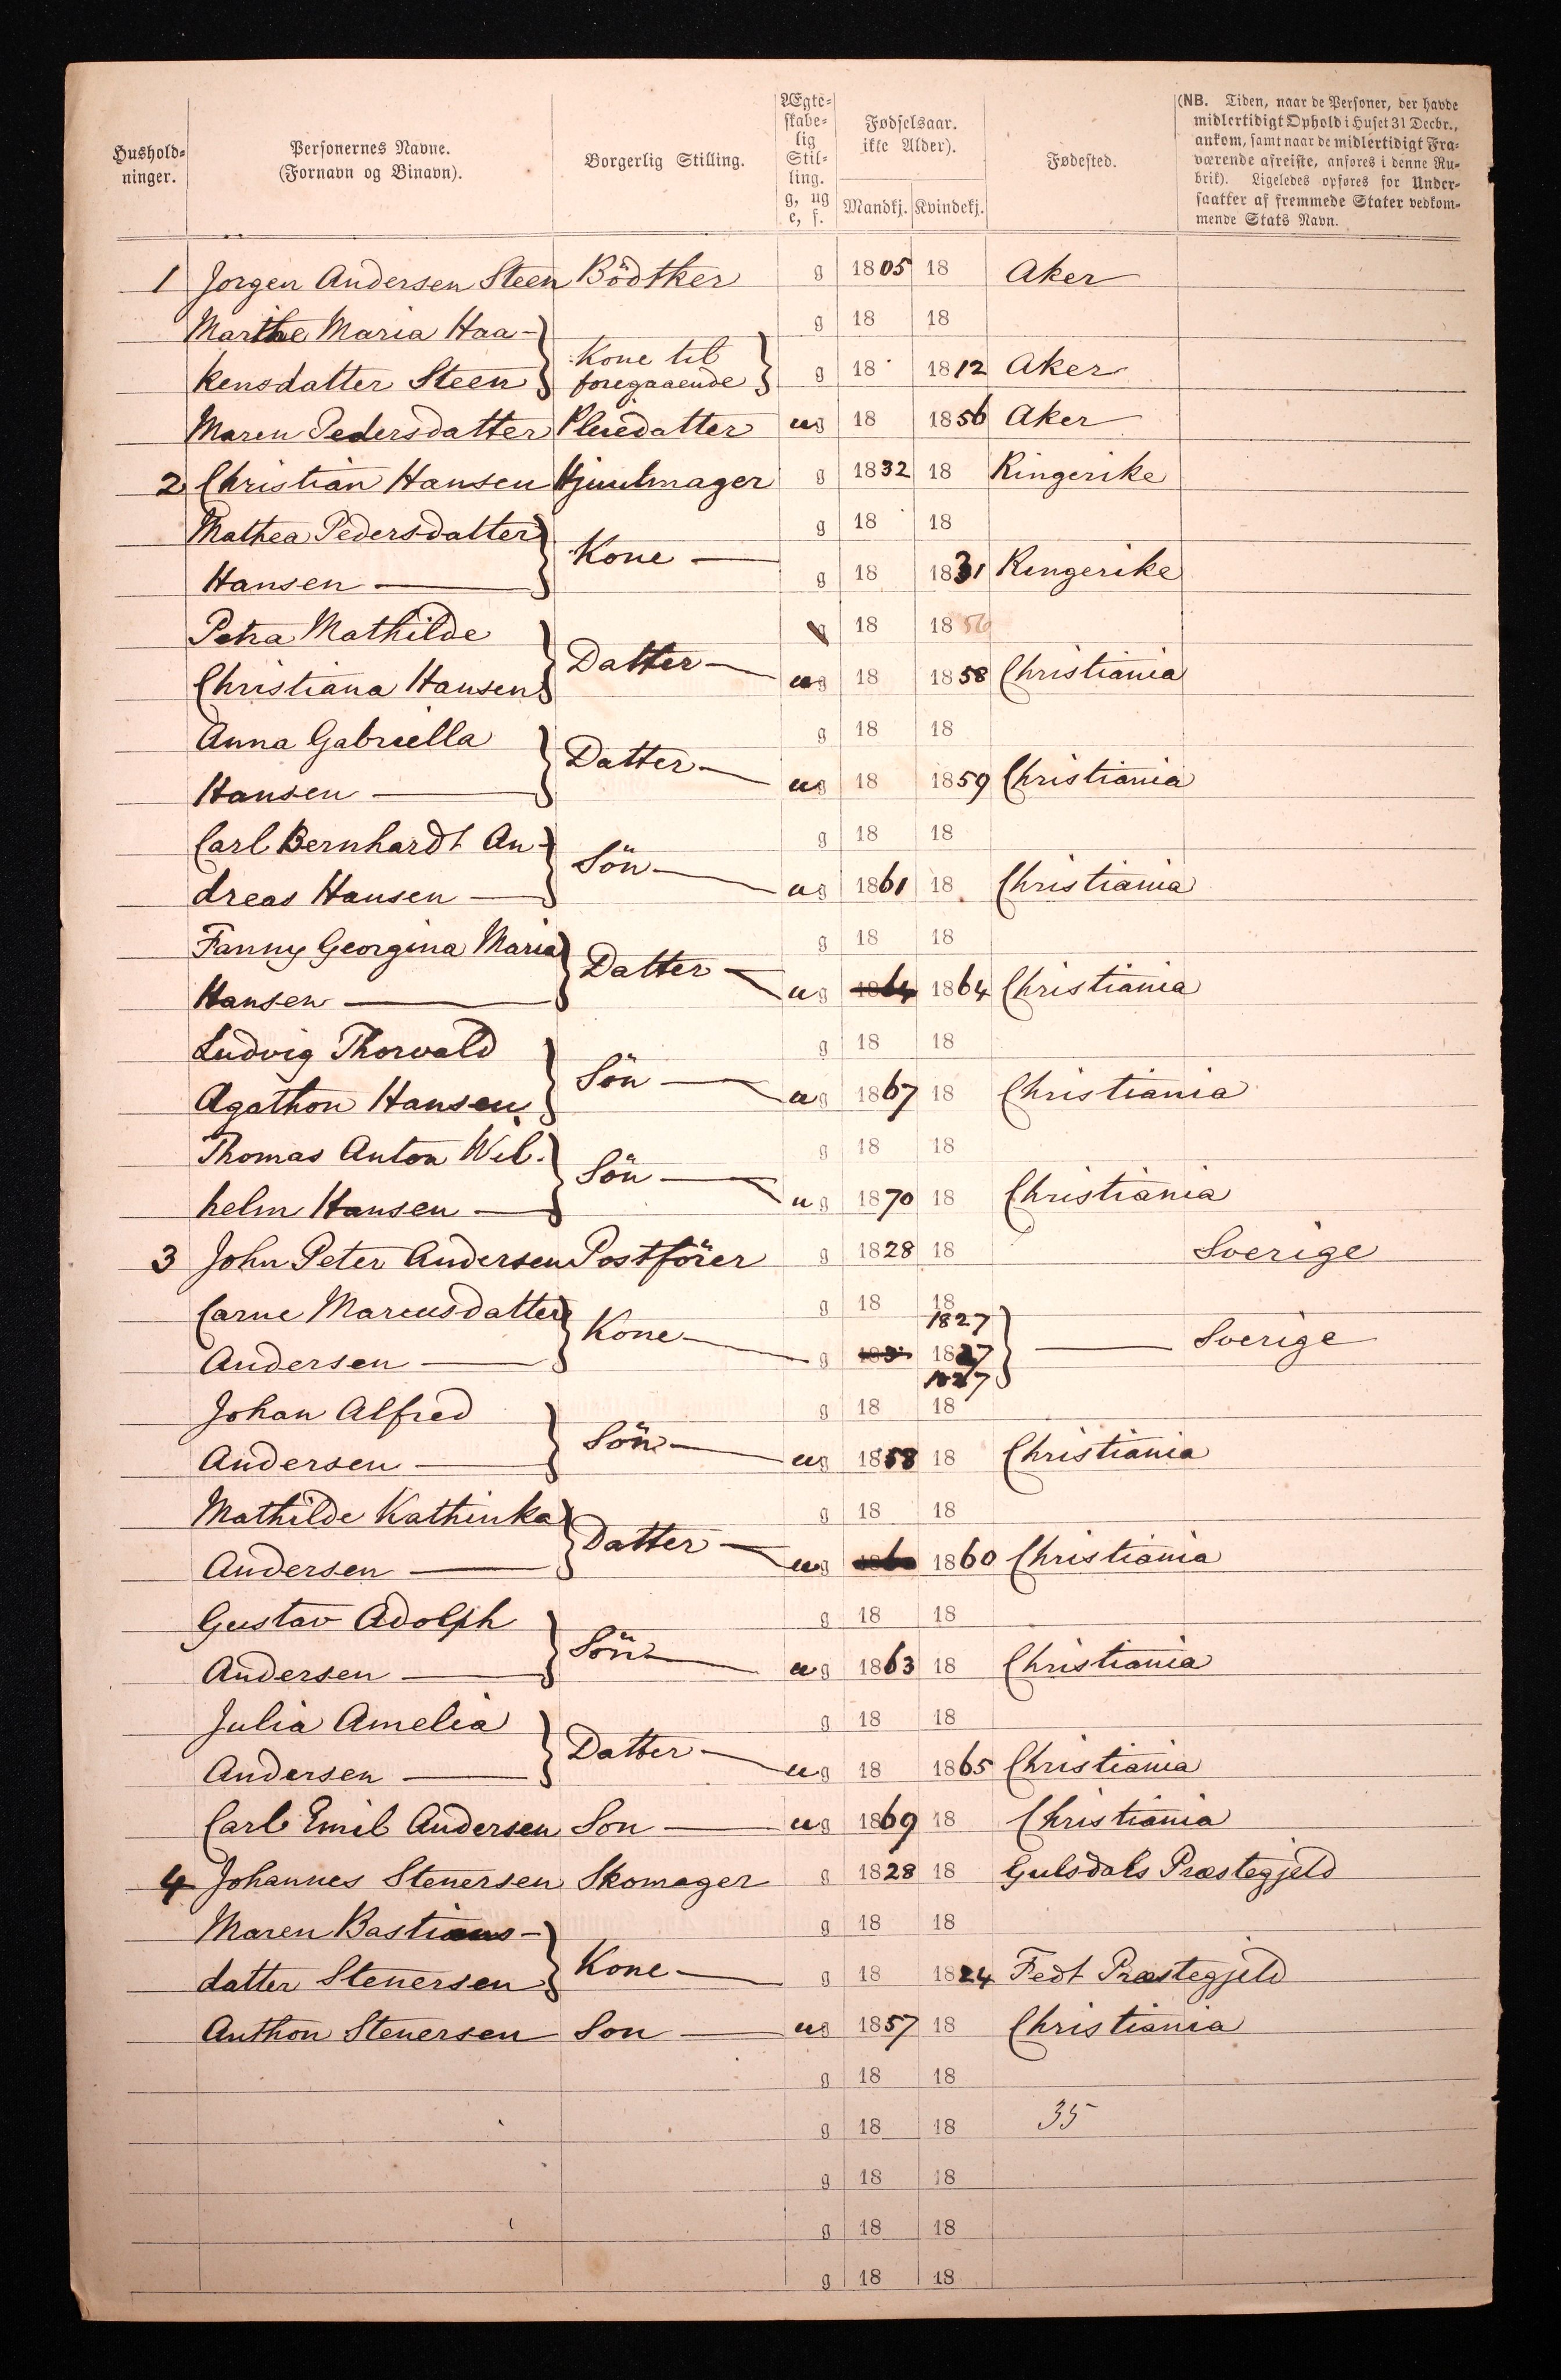 Hushold-
ninger.
Personernes Navne.
(Fornavn og Binavn).
Borgerlig Stilling.
Ægte-
skabe-
lig
Stil-
ling.
g, ug
e, f.
Fødselsaar.
ikke Alder).
Mandkj. Kvindekj.
Fødested.
(NB. Tiden, naar de Personer, der havde
midlertidigt Ophold i Huset 31 Decbr.,
ankom, samt naar de midlertidigt Fra-
værende afreiste, anføres i denne Ru-
brik). Ligeledes opføres for Under-
saatter af fremmede Stater vedkom-
mende Stats Navn.
1 Jorgen Andersen Steen Bödtker g 1805 18 Aker
Marthe Maria Haa- g 18 18
kensdatter Steen Kone til foregaaende g 18 1812 Aker
Maren Pedersdatter Pleiedatter ug 18 1856 Aker
2 Christian Hansen Hjuulmager g 1832 18 Ringerike
Mathea Pedersdatter g 18 18
Hansen Kone g 18 1831 Ringerike
Petra Mathilde g 18 1856
Christiana Hansen Datter ug 18 1858 Christiania
Anna Gabriella g 18 18
Hansen Datter ug 18 1859 Christiania
Carl Bernhardt An- g 18 18
dreas Hansen Sön ug 1861 18 Christiania
Fanny Georgina Maria g 18 18
Hansen Datter ug 1864 1864 Christiania
Ludvig Thorvald g 18 18
Agathon Hansen Sön ug 1867 18 Christiania
Thomas Anton Wil- g 18 18
helm Hansen Sön ug 1870 18 Christiania
3 John Peter Andersen Postförer g 1828 18 Sverige
Carne Marcusdatter g 18 18
1827
Andersen Kone g 1827 Sverige
1827
Johan Alfred g 18 18
Andersen Sön ug 1858 18 Christiania
Mathilde Kathinka g 18 18
Andersen Datter ug 1860 1860 Christiania
Gustav Adolph g 18 18
Andersen Sön ug 1863 18 Christiania
Julia Amelia g 18 18
Andersen Datter ug 18 1865 Christiania
Carl Emil Andersen Son ug 1869 18 Christiania
4 Johannes Stenersen Skomager g 1828 18 Gulsdals Præstegjeld
Maren Bastians- g 18 18
datter Stenersen Kone g 18 1824 Fedt Præstegjeld
Anthon Stenersen Son ug 1857 18 Christiania
g 18 18
g 18 18 35
g 18 18
g 18 18
g 18 18